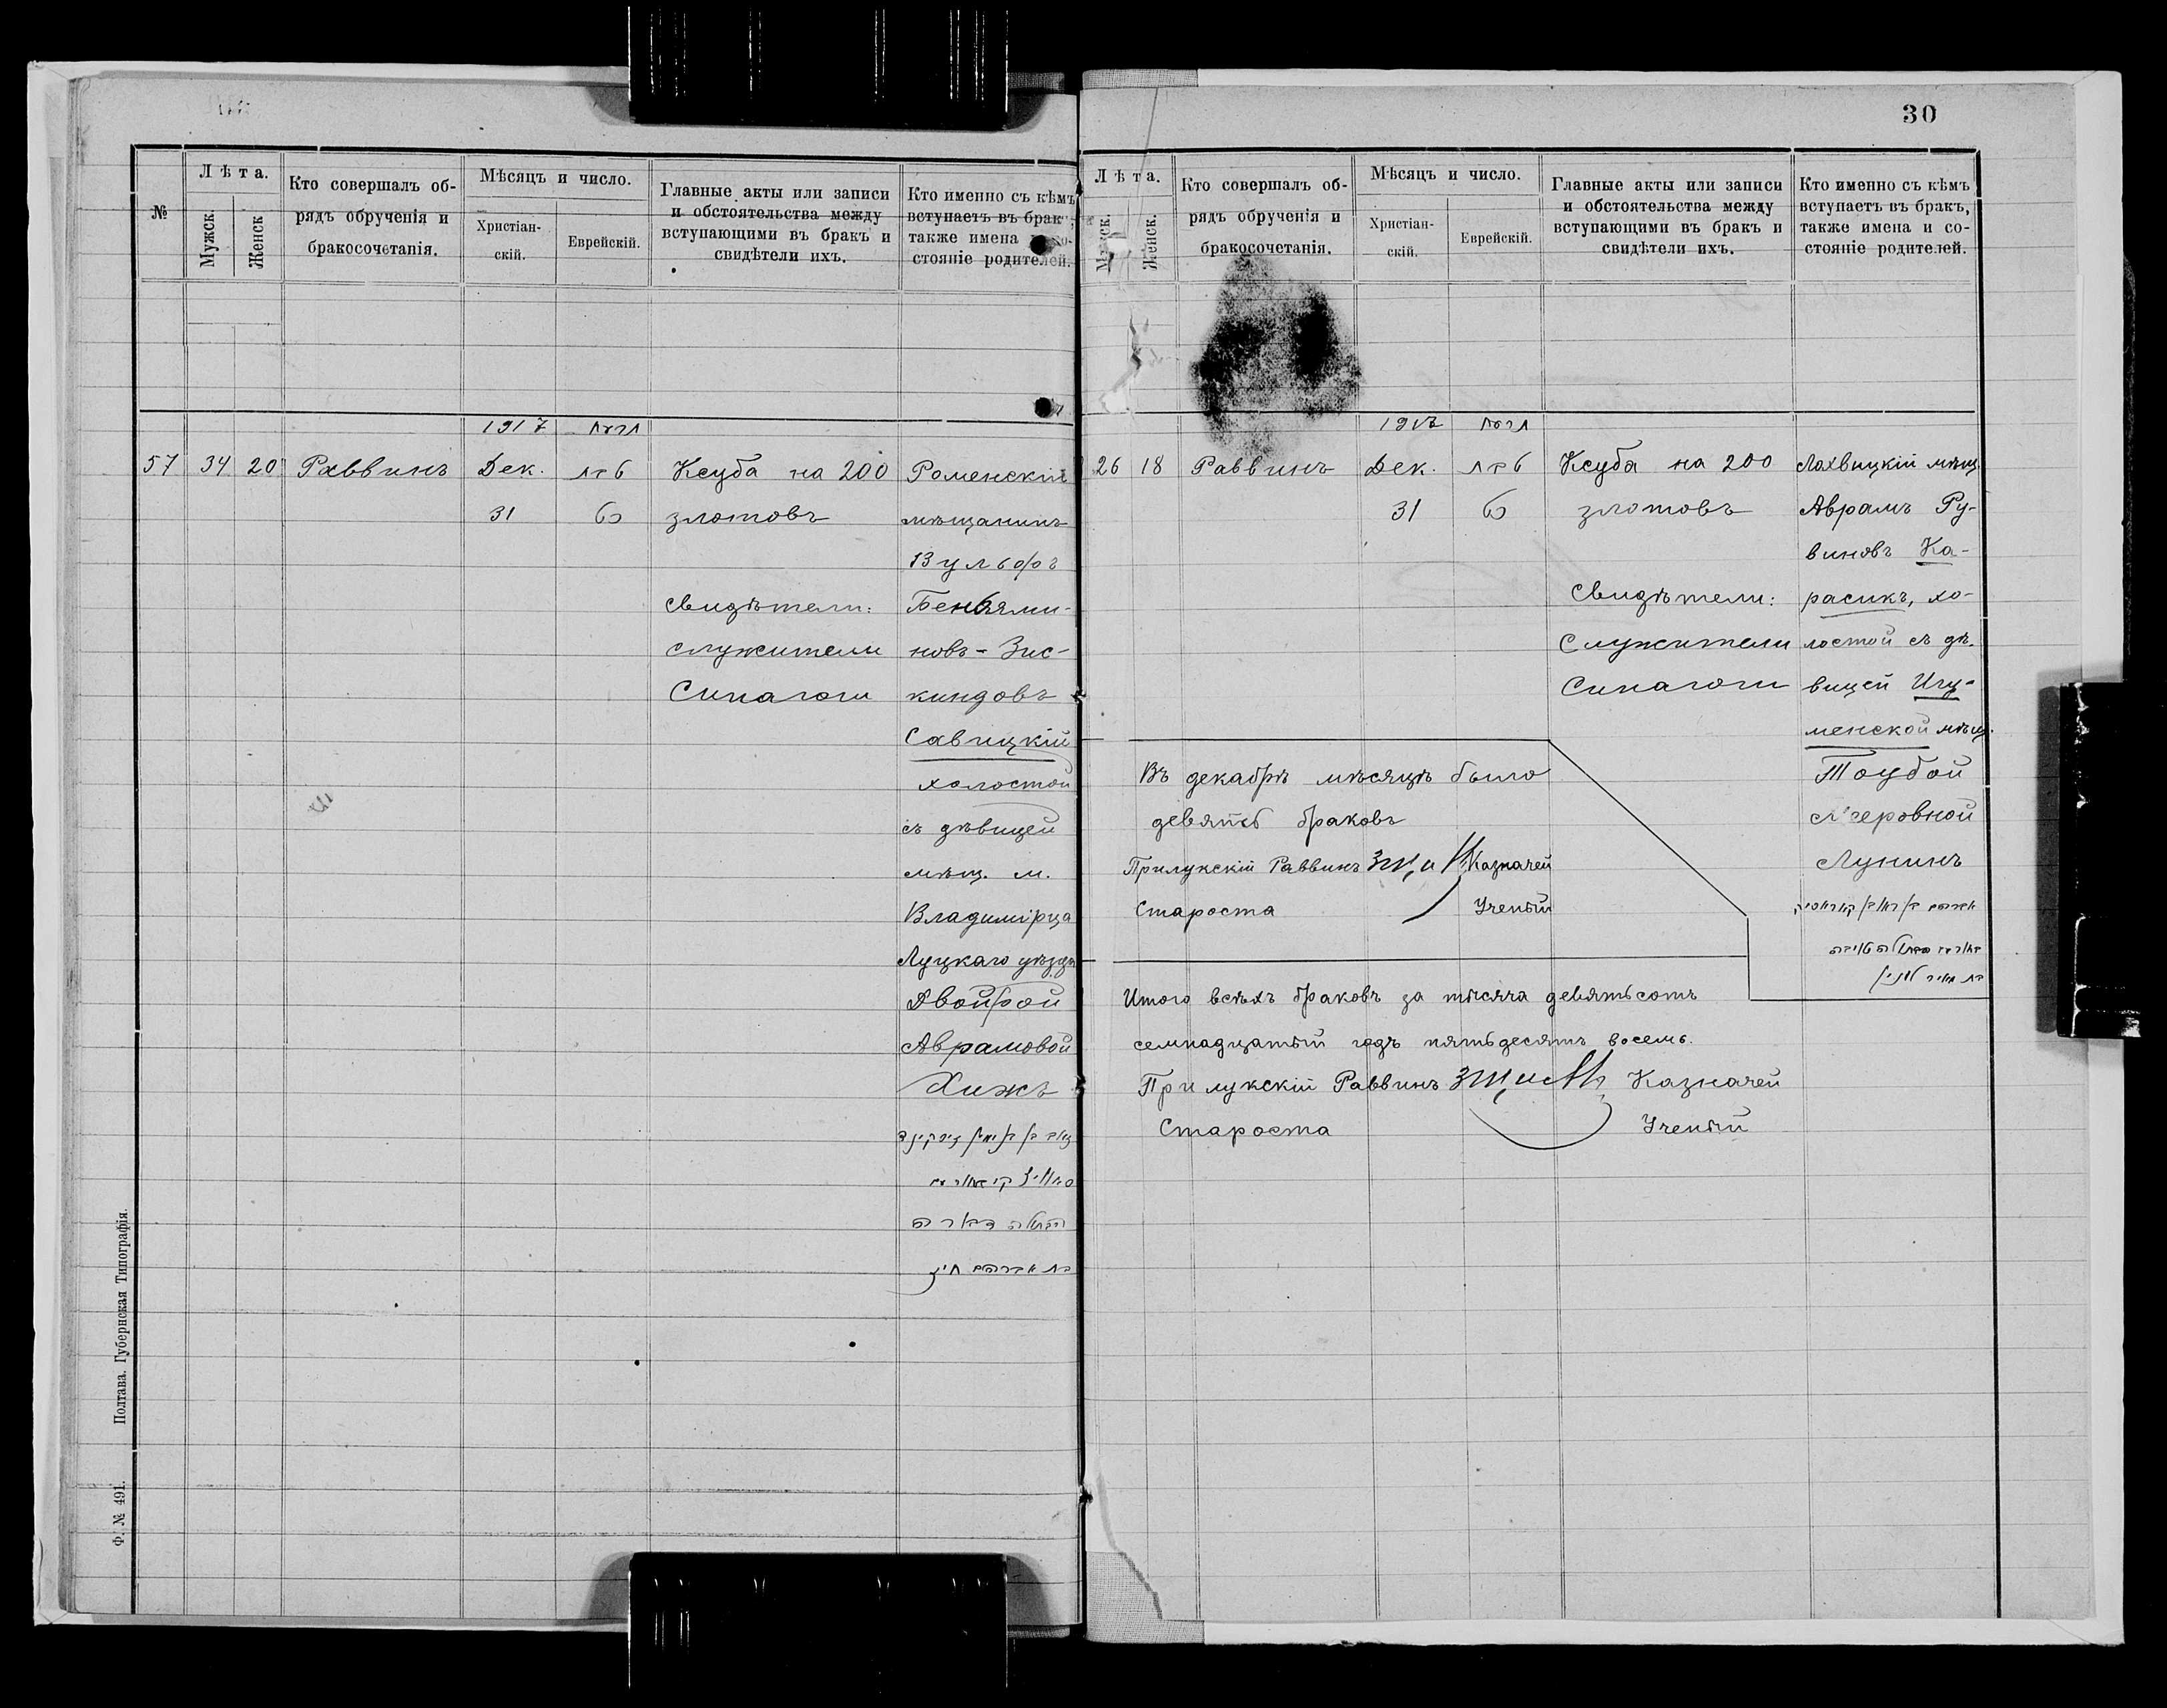 30
№
Лѣта.
Мужск.
Женск
Кто совершалъ об-
рядъ обрученія и
бракосочетанія.
Мѣсяцъ и число.
Христіан-
скій.
Еврейскій.
Главные акты или записи
и обстоятельства между
вступающими въ бракъ и
свидѣтели ихъ.
Кто именно съ кѣмъ
вступаетъ въ бракъ,
также имена
стояніе родителей.
1917
57 34 20 Раввинъ Дек. Ксуба на 200 Роменскій
31 злотовъ мѣщанинъ
Вульфъ
Свидѣтели: Беньями-
служители новъ-Зис-
Синагоги киндовъ
Савицкій
холостой
съ дѣвицей
мѣщ. м.
Владимірца
Луцкаго уѣзда
Двойрой
Аврамовой
Хижъ
Лѣта.
Мужск.
Женск.
Кто совершалъ об-
рядъ обрученія и
бракосочетанія.
Мѣсяцъ и число.
Христіан-
скій.
Еврейскій.
Главные акты или записи
и обстоятельства между
вступающими въ бракъ и
свидѣтели ихъ.
Кто именно съ кѣмъ
вступаетъ въ бракъ,
также имена и со-
стояніе родителей.
1917
26 18 Раввинъ Дек. Ксуба на 200 Лохвицкій мѣщ.
31 злотовъ Аврамъ Ру-
виновъ Ка-
Свидѣтели: расикъ, хо-
Служители лостой съ дѣ-
Синагоги вицей Игу-
менской мѣщ.
Тоубой
Лунинъ
Въ декабрѣ мѣсяцѣ было
девять браковъ
Прилукскій Раввинъ Казначей
Староста Ученый
Итого всѣхъ браковъ за тысяча девятьсотъ
семнадцатый годъ пятьдесятъ восемь.
Прилукскій Раввинъ Казначей
Староста Ученый
Ф. № 491. Полтава. Губернская Типографія.